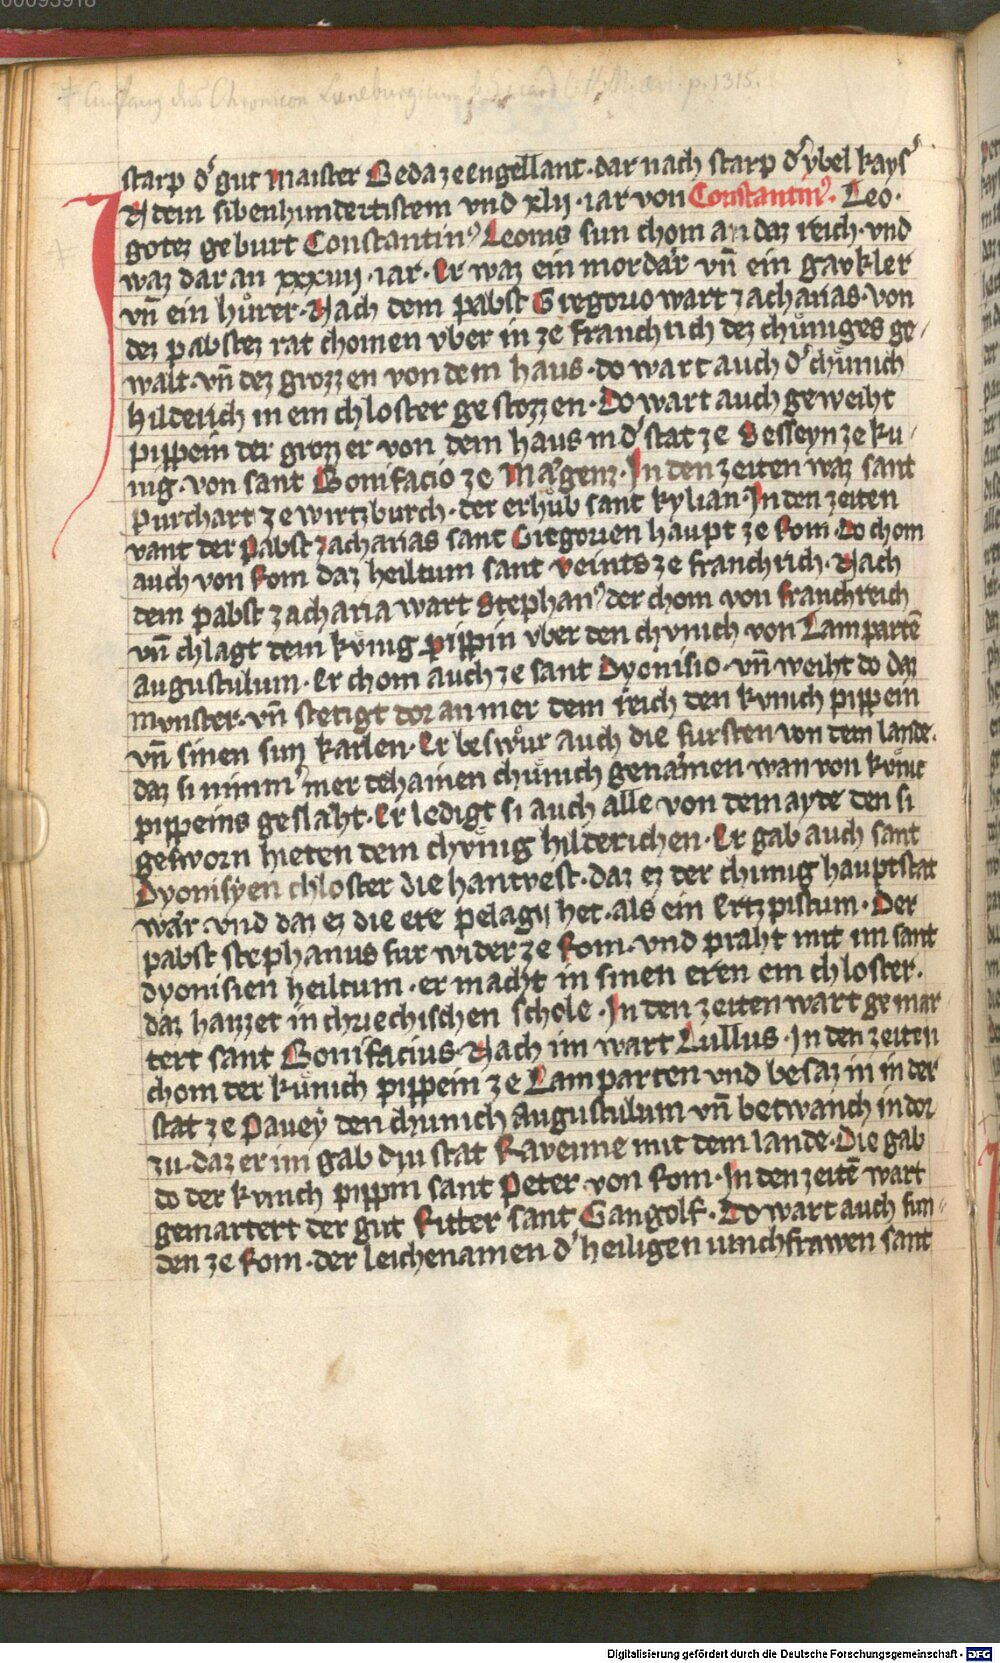 00093918
Anfang des Chronicon Luneburgicum p. 1315.
starp dˀ gut maister Beda ze engellant · dar nach starp dˀ ybel kaysˀ
N dem sibenhundertistem vnd xlij · iar von Constantinꝰ · Leo ·
gotez geburt Constantinꝰ Leonis sun chom an daz reich · vnd
waz dar an xxxiiij · iar · Er waz ein mordar vn̄ ein gavkler
vn̄ ein huͦrer · Nach dem pabst Gregorio wart zacharias · von
dez pabstez rat chomen vber in ze franchrich dez chuͤniges ge/
walt · vn̄ dez grozzen von dem haus · do wart auch dˀ chuͤnich
hilderich in ein chloster gestozzen · Do wart auch geweiht
pippein der grozzer von dem haus in dˀ stat ze Sesseyn ze ku/
nig · von sant Bonifacio ze Magenz · In den zeiten waz sant
purchart ze wirtzburch · der erhuͦb sant kylian · In den zeiten
vant der Pabst zacharias sant Gregorien haupt ze Rom · Do chom
auch von Rom daz heiltum sant veints ze franchrich · Nach
dem pabst zacharia wart Stephanꝰ der chom von franchreich
vn̄ chlagt dem kvnig pippin vber den chvnich von Lampartē
augustulum · Er chom auch ze sant Dyonisio · vn̄ weiht do daz
mvnster · vn̄ stetigt dor an mer dem reich den kvnich pippein
vn̄ sinen sun karlen · Er beswuͦr auch die fursten von dem lande ·
daz si nimmˀ mer dehainen chuͤnich genamen wan von kvnic
pippeins geslaht · Er ledigt si auch alle von dem ayde den si
gesworn hieten dem chvnig hilderichen · Er gab auch sant
Dyonisyen chloster die hantvest · daz ez der chunig hauptstat
war · vnd daz ez die ere pelagij het · als ein Ertzpistum · Der
pabst stephanus fur wider ze Rom · vnd praht mit im sant
dyonisien heiltum · er macht in sinen eren ein chloster ·
daz haizzet in chriechischen schole · In den zeiten wart gemar
tert sant Bonifacius · Nach im wart Lullus · In den zeiten
chom der kuͤnich pippein ze Lamparten vnd besaz in in der
stat ze Pavey den chunich augustulum vn̄ betwanch in dor
zu · daz er im gab diu stat Ravenne mit dem lande · Die gab
do der kvnich pippin sant Peter von Rom · In den zeitē wart
gemartert der gut Ritter sant Gangolf · Do wart auch fun/
den ze Rom · der leichenamen dˀ heiligen iunchfrawen sant
Digitalisierung gefördert durch die Deutsche Forschungsgemeinschaft - DFG